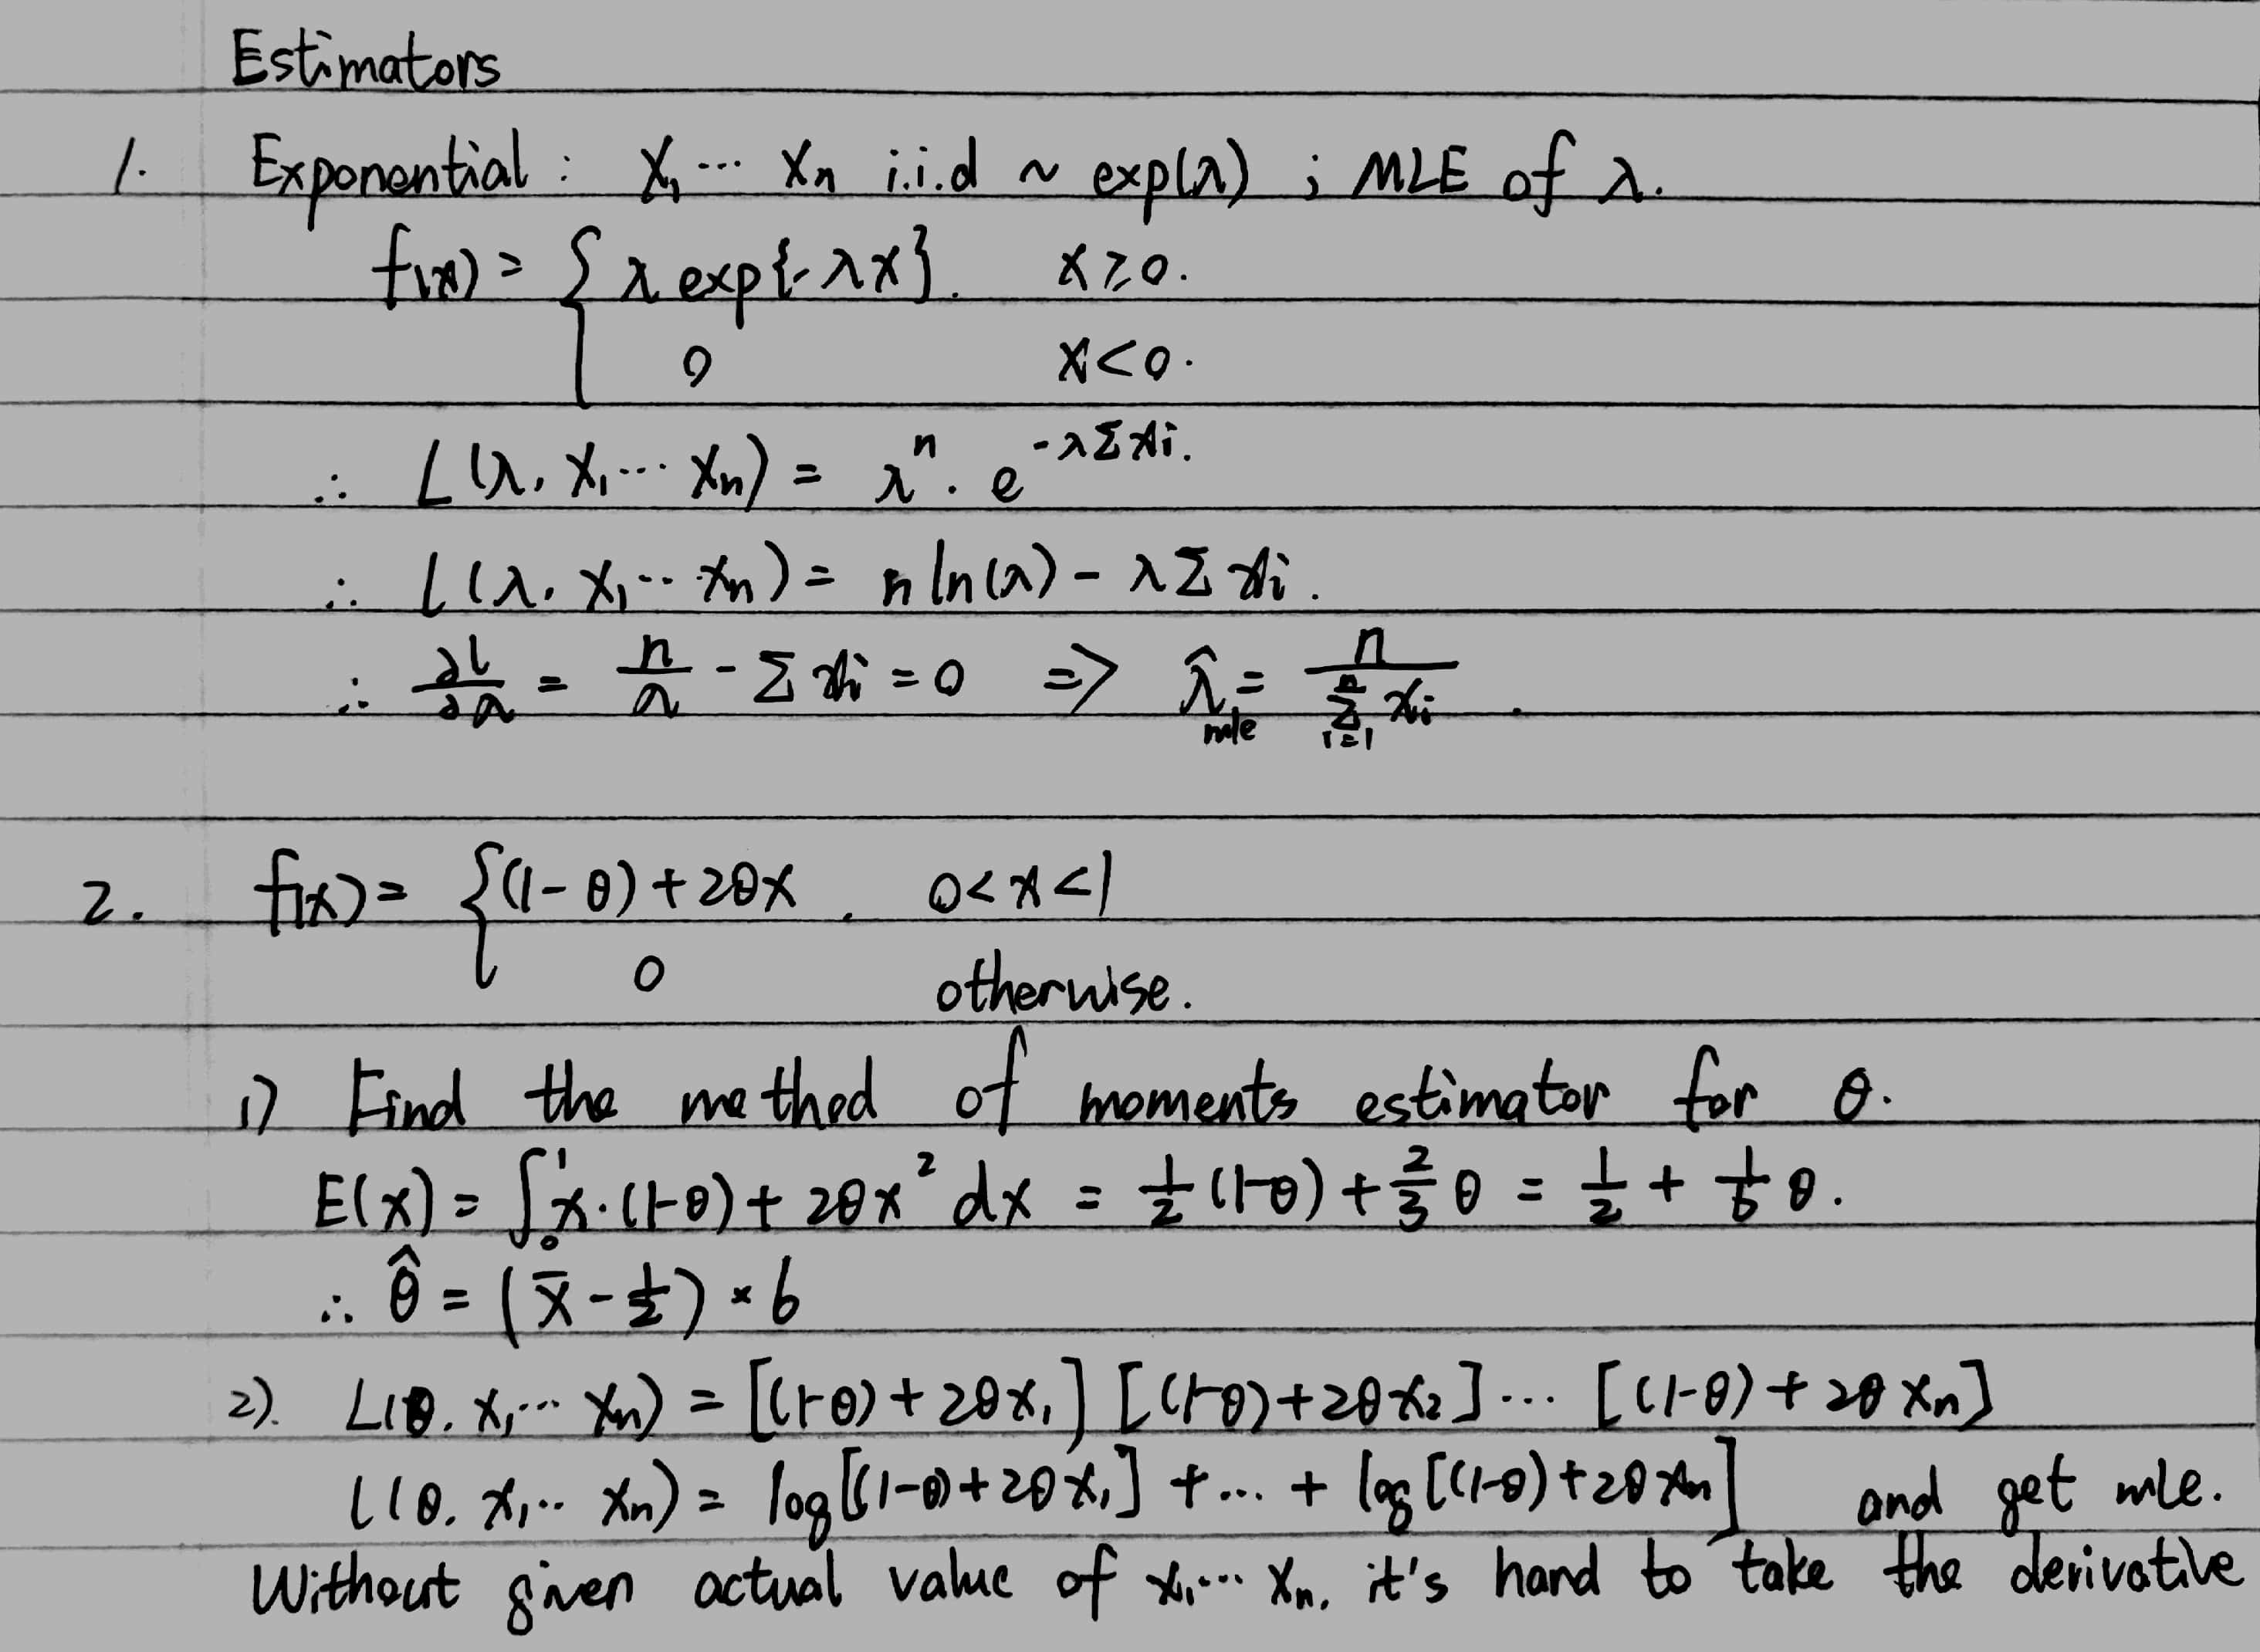 Estimators
1. Exponential : X₁ ⋯ Xₙ i.i.d ~ exp(λ) ; MLE of λ.
f(x) = { λ exp{-λx}. x ≥ 0.
0 x < 0.
∴ L(λ, X₁ ⋯ Xₙ) = λⁿ · e^{-λΣxᵢ}.
∴ l(λ, X₁ ⋯ Xₙ) = n ln(λ) - λ Σ xᵢ.
∴ ∂l/∂λ = n/λ - Σ xᵢ = 0 => λ̂_mle = n / Σ_{i=1}^{n} xᵢ .
2. f(x) = { (1-θ) + 2θx . 0 < x < 1
0 otherwise.
1) Find the method of moments estimator for θ.
E(X) = ∫₀¹ x·(1-θ) + 2θx² dx = 1/2 (1-θ) + 2/3 θ = 1/2 + 1/6 θ.
∴ θ̂ = (x̄ - 1/2) × 6
2). L(θ, X₁ ⋯ Xₙ) = [(1-θ) + 2θx₁] [(1-θ) + 2θx₂] ⋯ [(1-θ) + 2θxₙ]
l(θ, x₁ ⋯ xₙ) = log[(1-θ) + 2θx₁] + ⋯ + log[(1-θ) + 2θxₙ] and get mle.
Without given actual value of x₁ ⋯ xₙ, it's hard to take the derivative